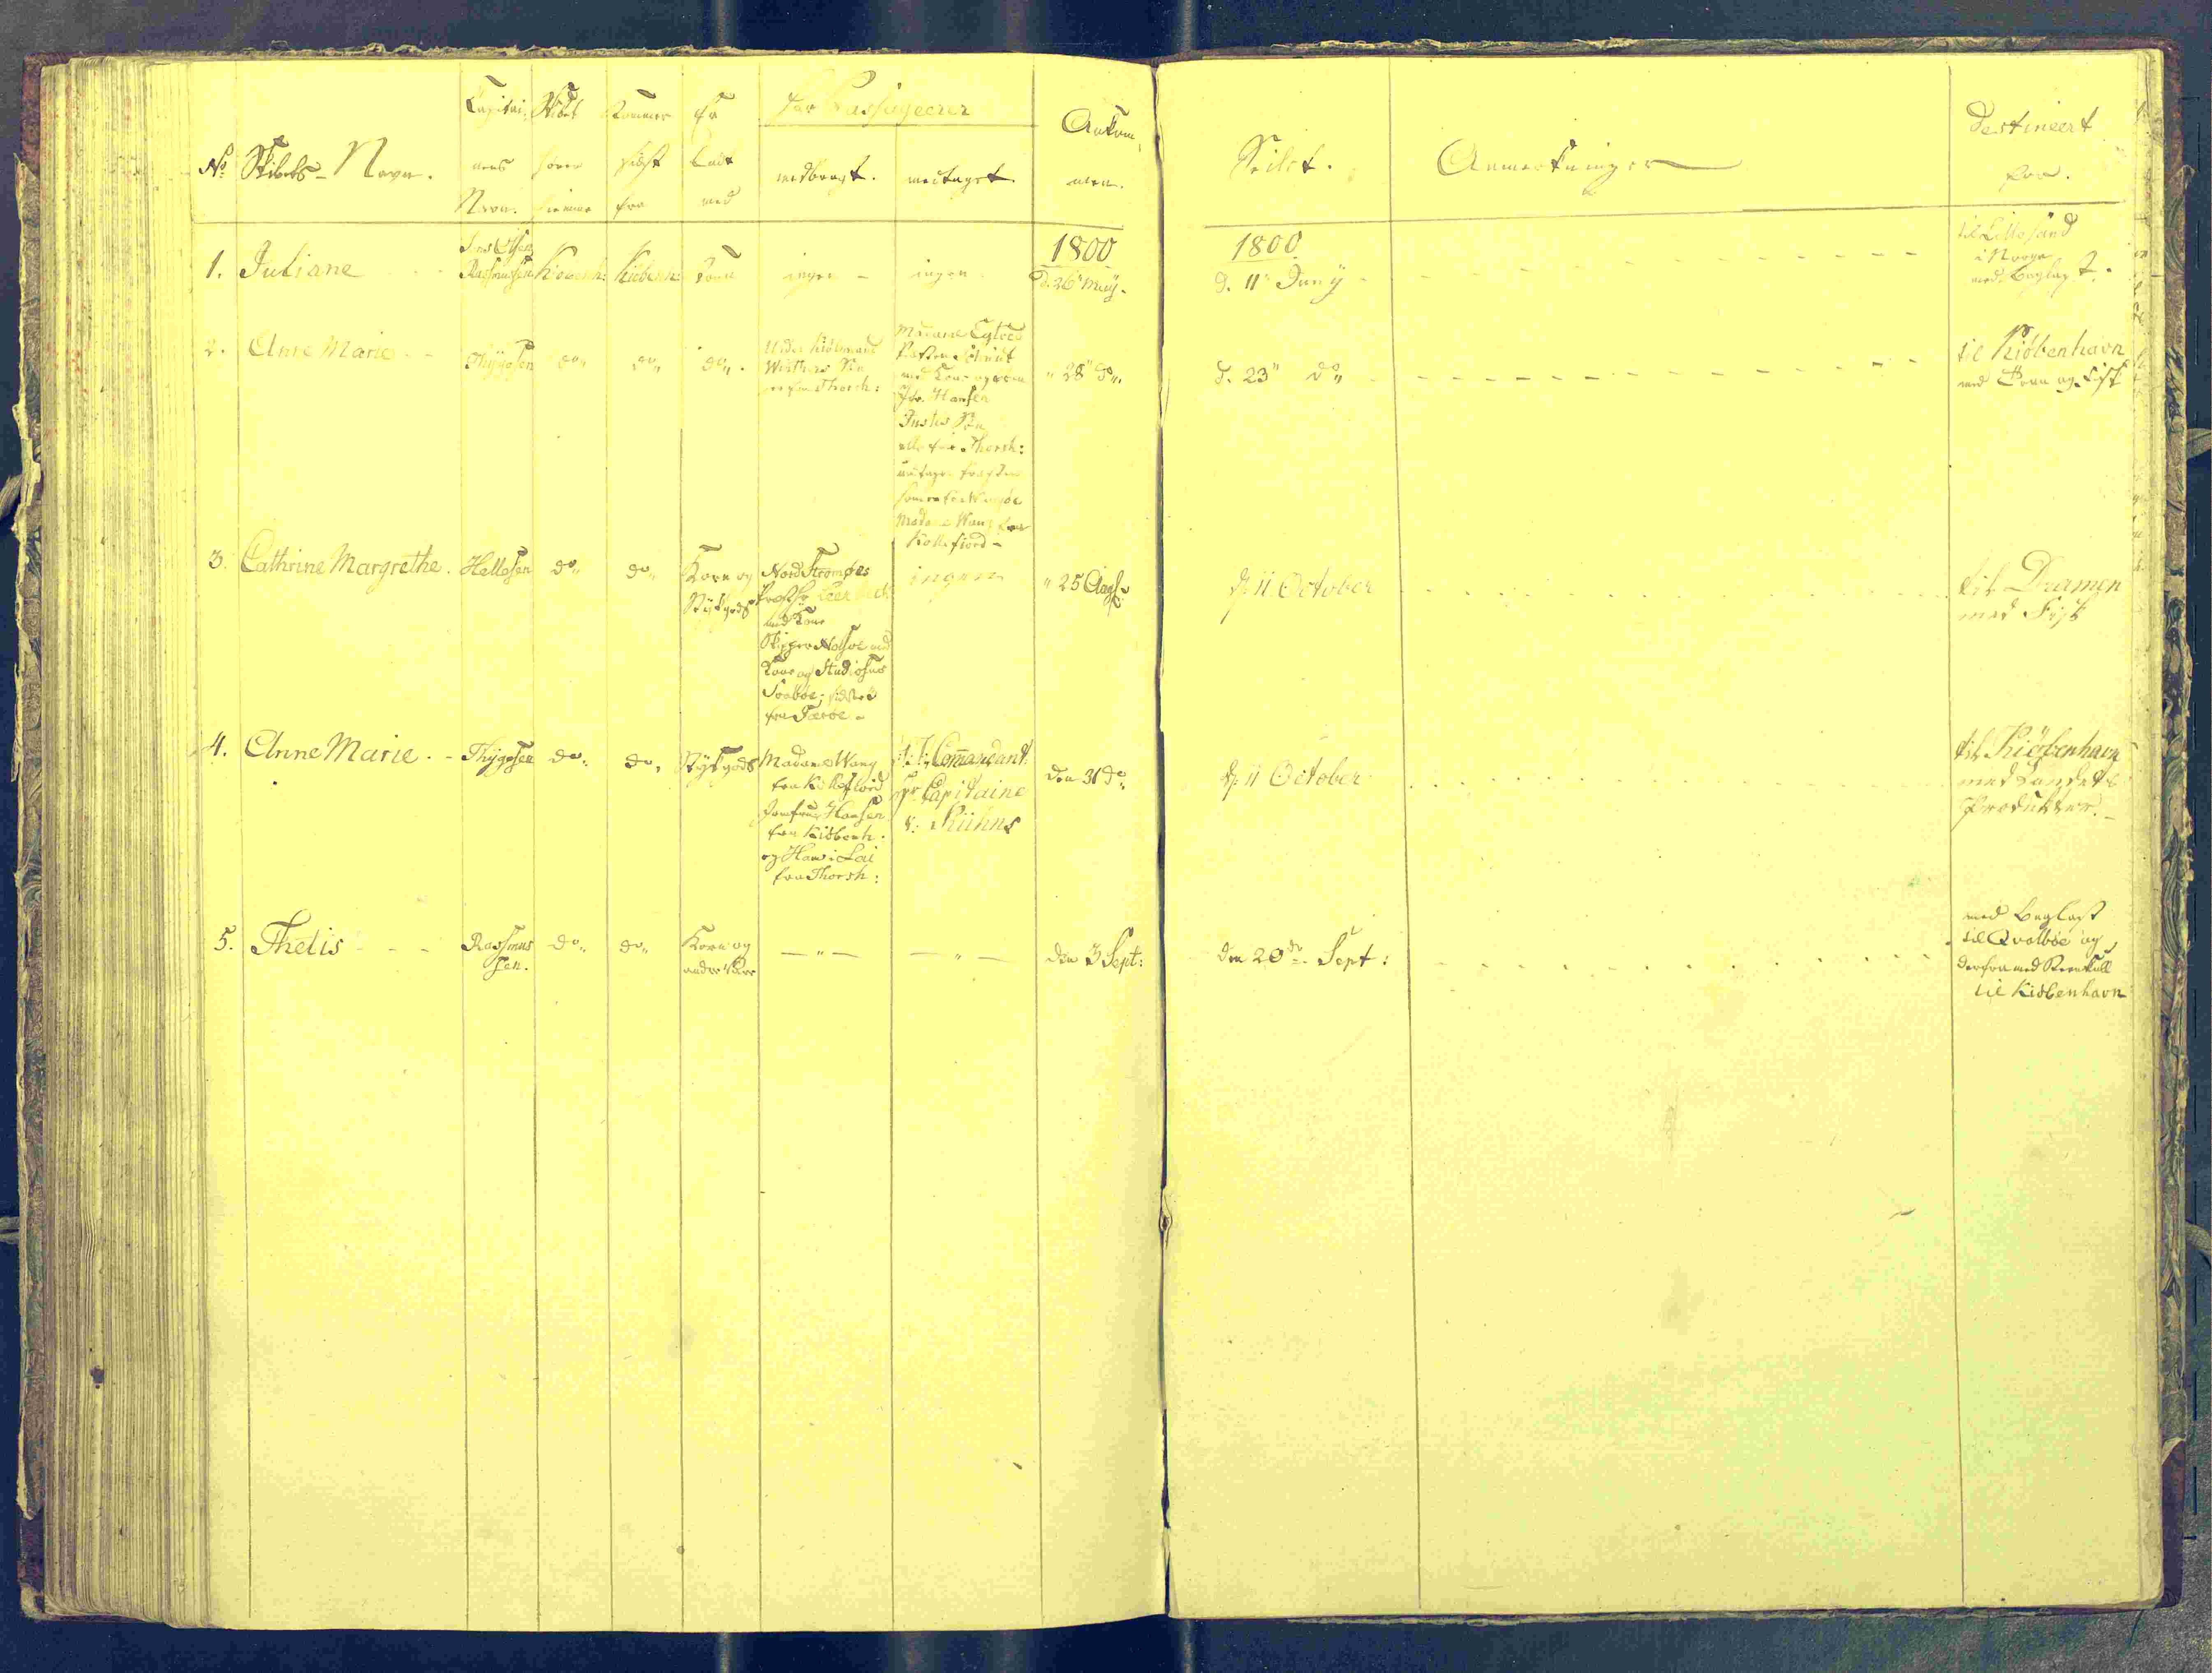 No Skibets-Navn.
Capitai-
nens
Navn.
Skibet
hører
hiemme
Kommer
sidst
fra
Er
ladt
med
har Passageerer
medbragt.
medtaget.
Ankom-
men.
Seilet.
Anmerkninger
Destineert
for.
1. Juliane
Rasmusen
Kiøbenh:
Kiøbenh:
Korn
ingen
ingen
1800
d. 26 Maij.
1800
d. 11 Junij
til Lillesand
i Norge
med Baglast.
2. Anne Marie
Thygesen
do
do
do.
fra Thorsh:
Madame
med Kone og
Hansen
alle fra Thorsh:
Madame Wang fra
Kollefiord
" 28 do
d. 23 do
til Kiøbenhavn
med Tran og Fisk
3. Cathrine Margrethe.
Hellesen
do
do
Korn og
Stykgods
Nord Strømøes
med Kone
Skipper Nolsøe med
Kone og Studiosus
Svaboe,
fra Færøe
ingen
" 25 Aug:
d. 11 October
til Dramen
med Fisk
4. Anne Marie.
Thygesen
do
do.
Stykgods
Madame Wang
fra Kollefiord
Jomfrue Hansen
fra Kiøbenh:
og Hans i Lai
fra Thorsh:
Commandant
Hr Capitaine
v. Rühns
den 31 do
d. 11 October
til Kiøbenhavn
med Landets
Produkter.
5. Thetis
Rasmus
sen.
do
do
Korn og
andre Vare
— " —
— " —
den 3 Sept:
den 20de Sept:
med Baglast
til Qvalbøe og
derfra med Steenkull
til Kiøbenhavn